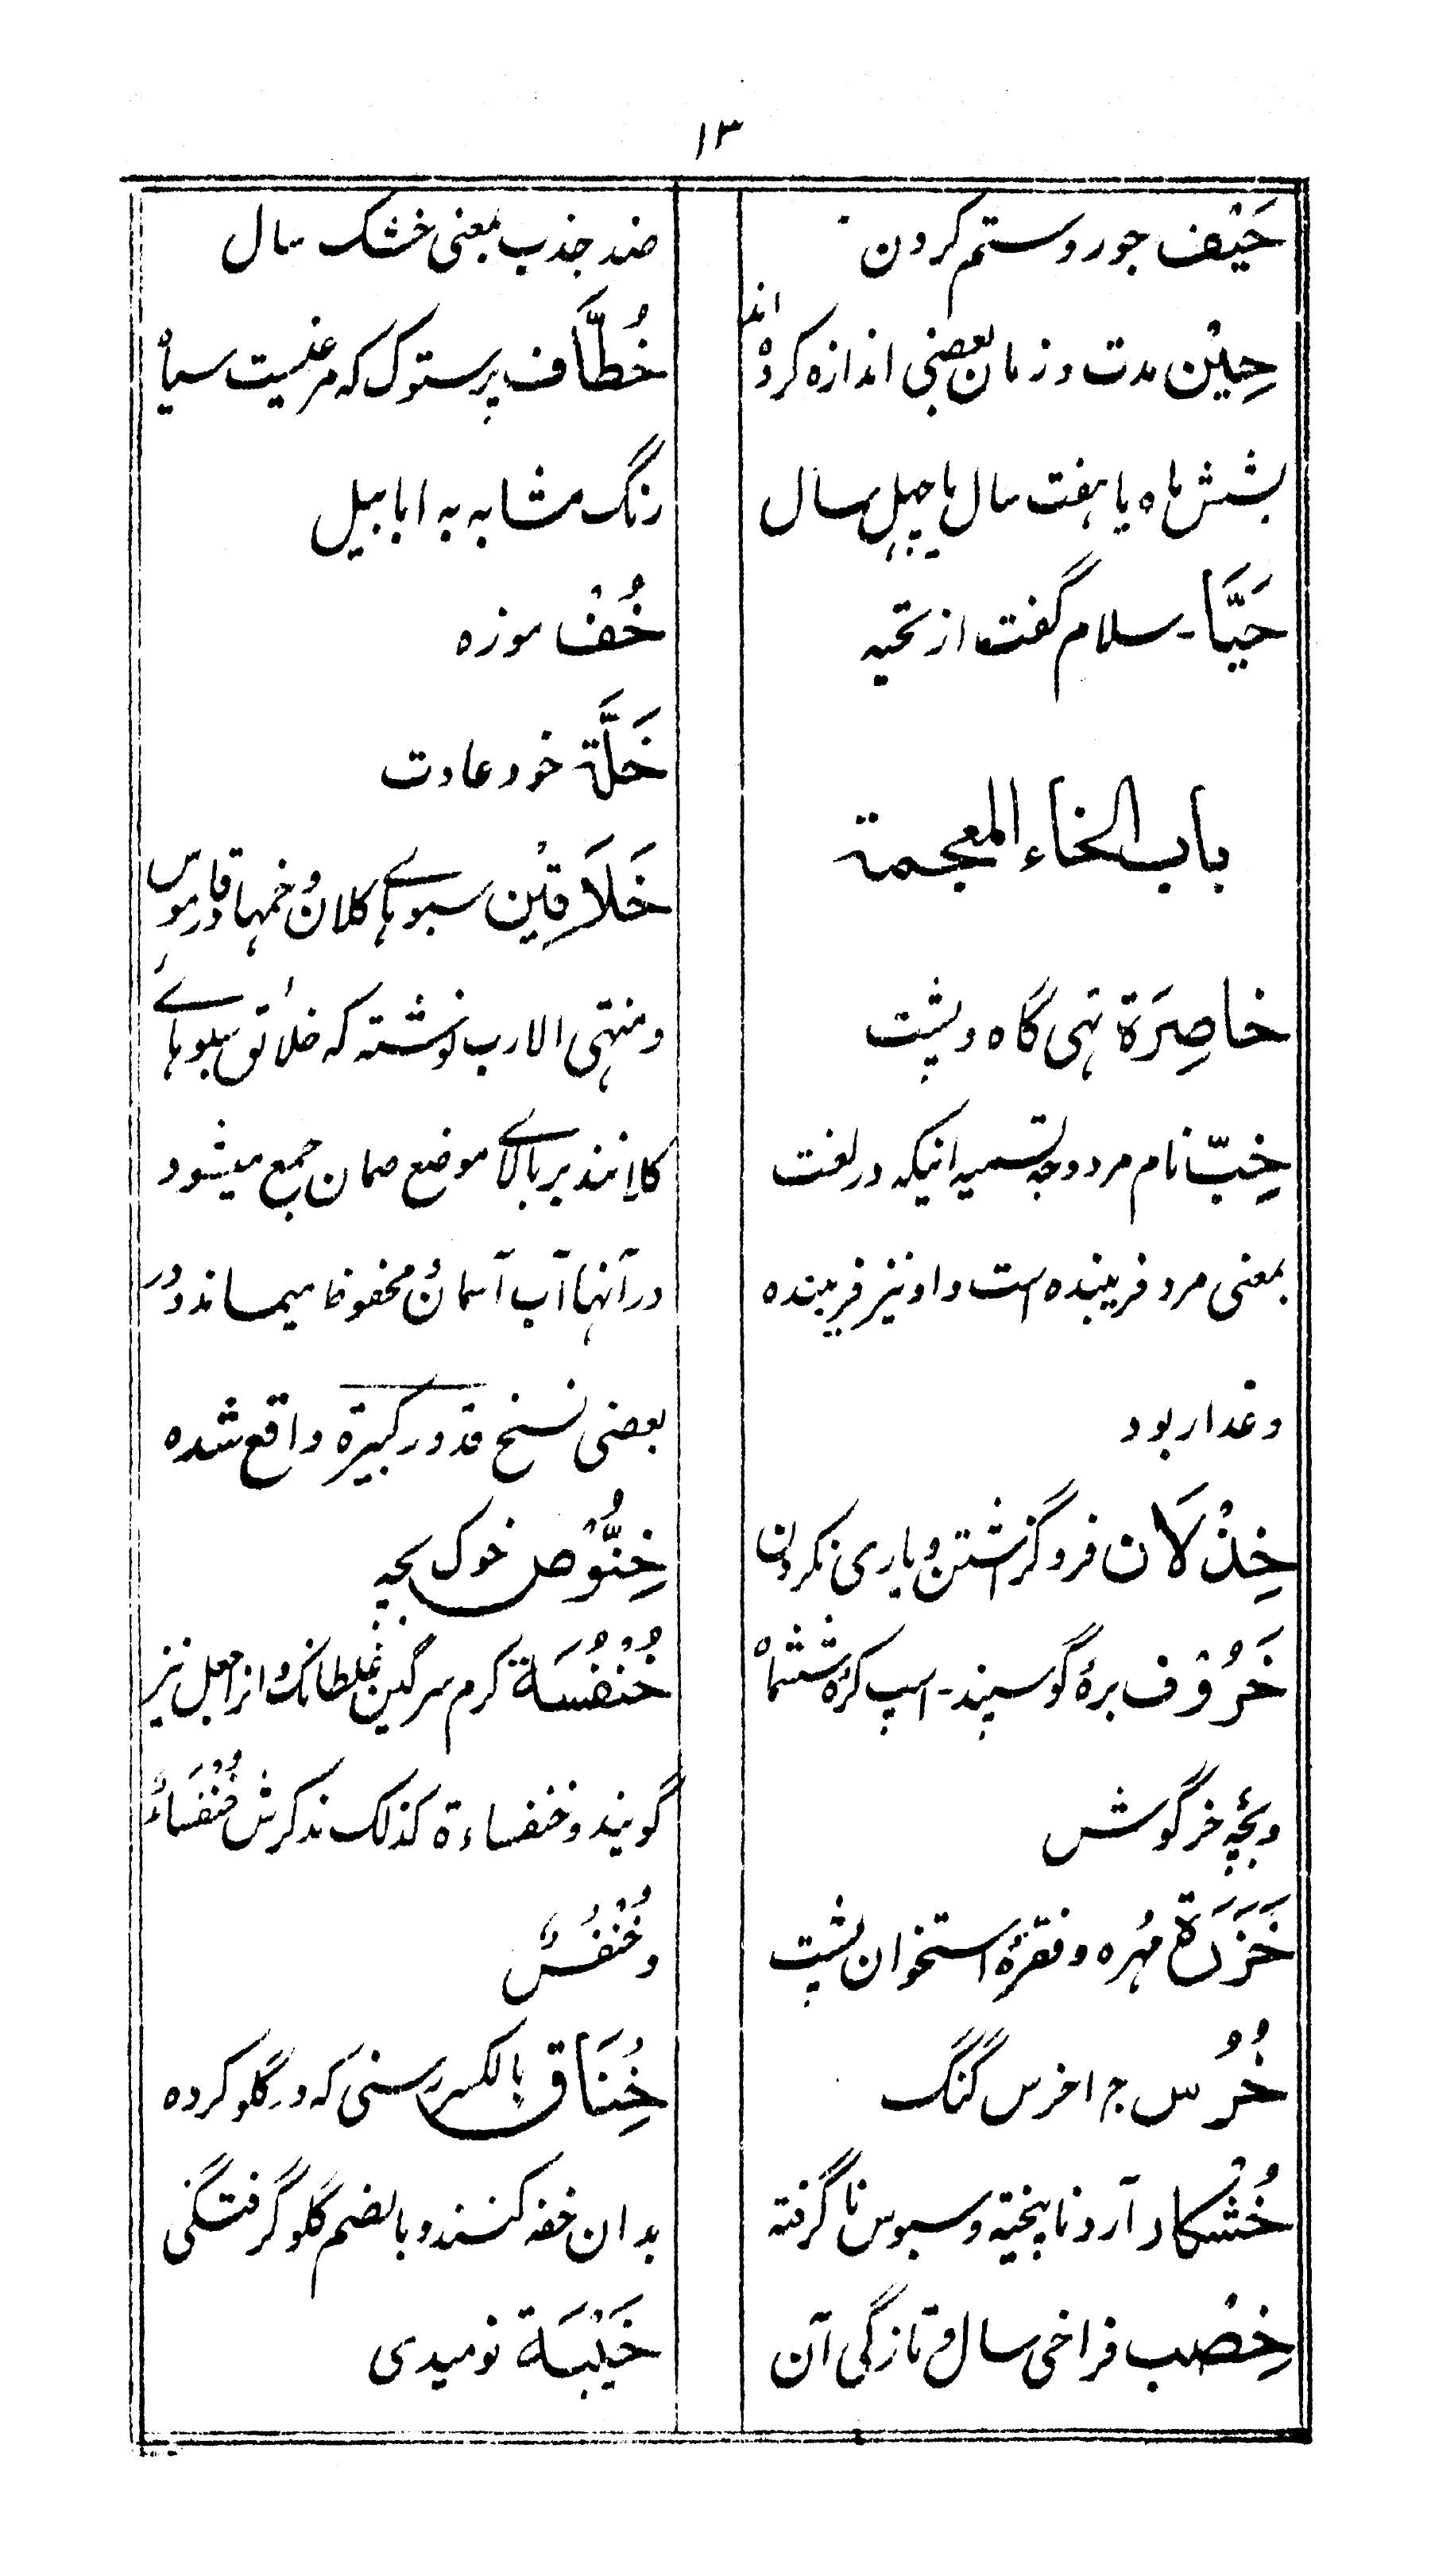 ۱۳
حَیْف جور و ستم کردن
حِیْن مدت و زمان بعضی اندازه کرده اند
بشش ماه یا هفت سال یا چهل سال
حَیَّا - سلام گفت از تحیه
باب الخاء المعجمة
خاصِرَة تهی گاه و پشت
خِبّ نام مرد و وجه تسمیه اینکه در لغت
بمعنی مرد فریبنده است و او نیز فریبنده
و غدار بود
خِذْلَان فروگزاشتن و یاری نکردن
خَرُوْف برهٔ گوسپند - اسپ کرهٔ ششماه
و بچهٔ خرگوش
خَرَزَة مُهره و فقرهٔ استخوان پشت
خُرْس ج اخرس گنگ
خُشْکار آرد ناپخته و سبوس ناگرفته
خِصْب فراخی سال و تازگی آن
ضد جذب بمعنی خشک سال
خُطَّاف پرستوک که مرغیست سیاه
رنگ مشابه به ابابیل
خُفْ موزه
خَلَّة خو و عادت
خَلَاقِیْن سبوهاے کلان و خمها در قاموس
و منتهی الارب نوشته که خلاقن سبوهاے
کلانند بر بالاے موضع صمان جمع میشود
در آنها آب آسمان و محفوظ میماند و در
بعضی نسخ قدور کبیرة واقع شده
خِنَّوْص خوک بچه
خُنْفُسَة کرم سرگین غلطانک و انرا جعل نیز
گویند و خنفساءة کذلک مذکرش خُنْفَسَاءُ
و خُنْفُسٌ
خُِنَاق بالکسر رسنی که در گلو کرده
بدان خفه کنند و بالضم گلو گرفتگی
خَیْبَة نومیدی